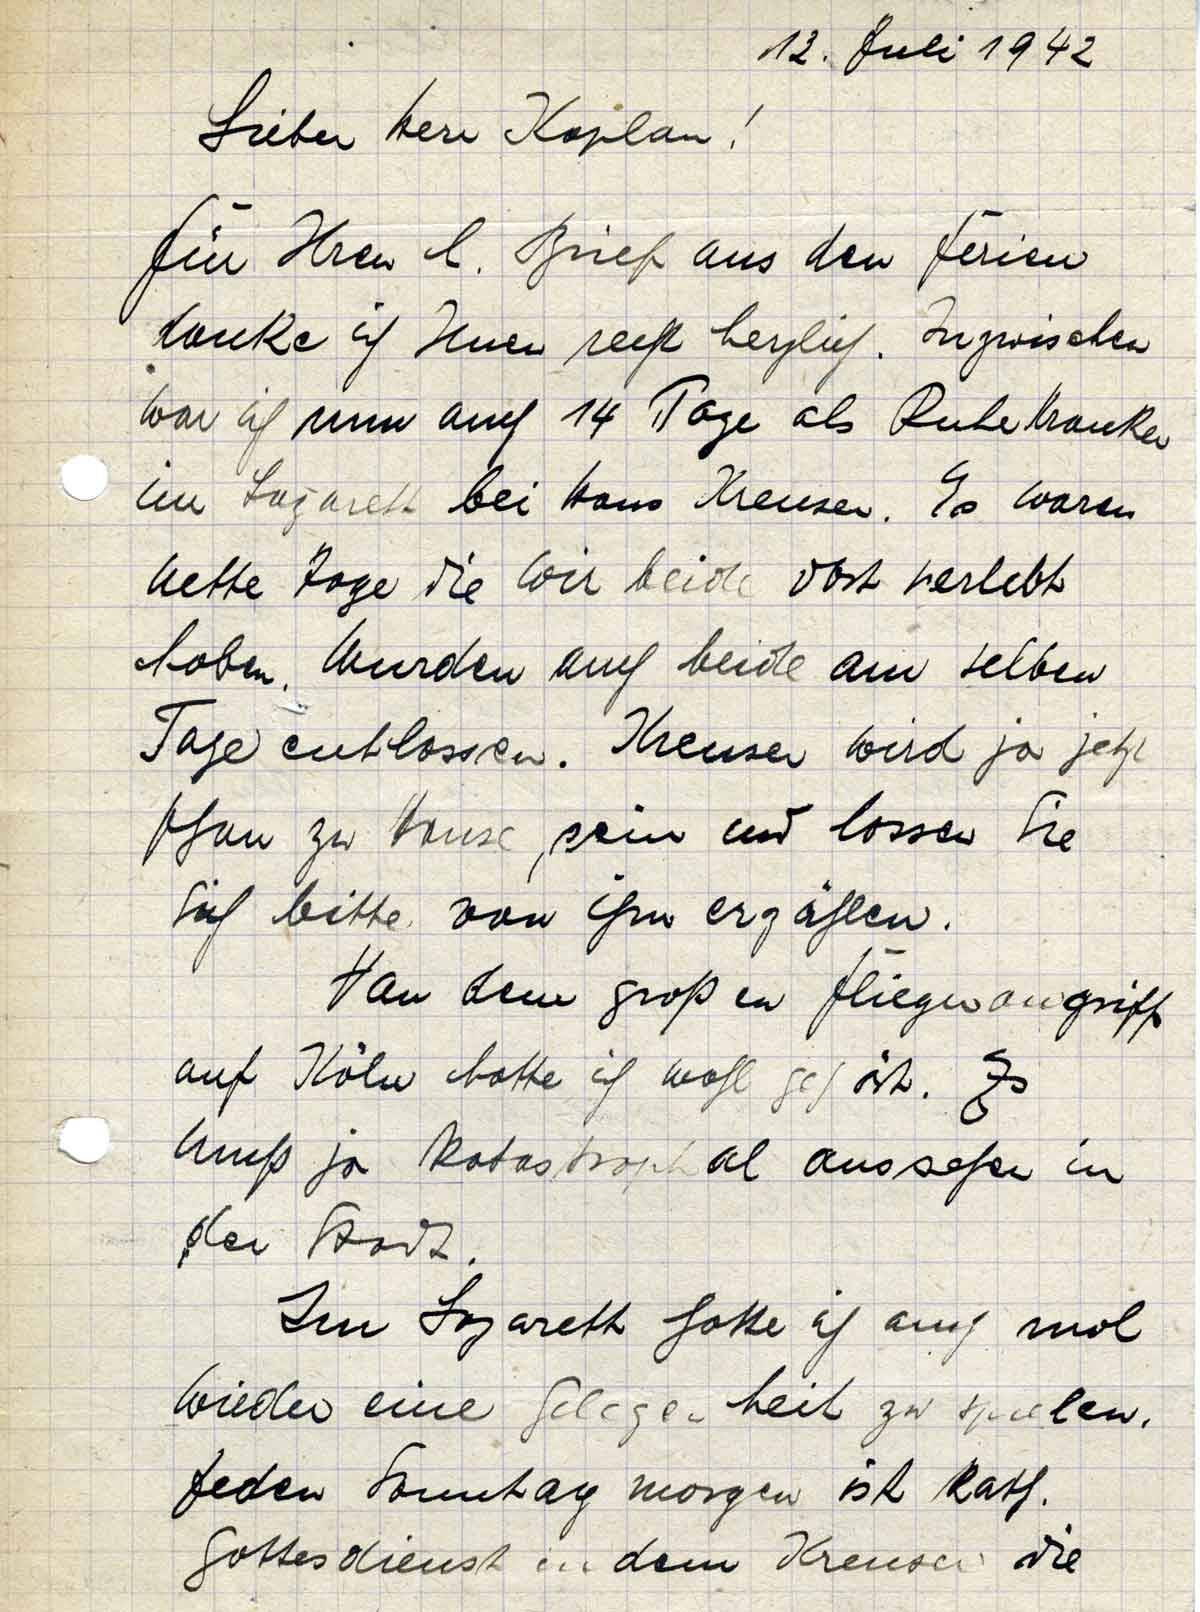 12. Juli 1942
Lieber Herr Kaplan!
Für Ihren l. Brief aus den Ferien
danke ich Ihnen recht herzlich. Inzwischen
war ich nun auch 14 Tage als Ruhekranker
im Lazarett bei Hans Kreuser. Es waren
nette Tage die wir beide dort verlebt
haben. Wurden auch beide am selben
Tage entlassen. Kreuser wird ja jetzt
schon zu Hause, sein und lassen Sie
sich bitte von ihm erzählen.
Von dem großen Fliegerangriff
auf Köln hatte ich wohl gehört. Es
muß ja katastrophal aussehen in
der Stadt.
Im Lazarett hatte ich auch mal
wieder eine Gelegenheit zu spielen.
Jeden Sonntag morgen ist kath.
Gottesdienst in dem Kreuser die